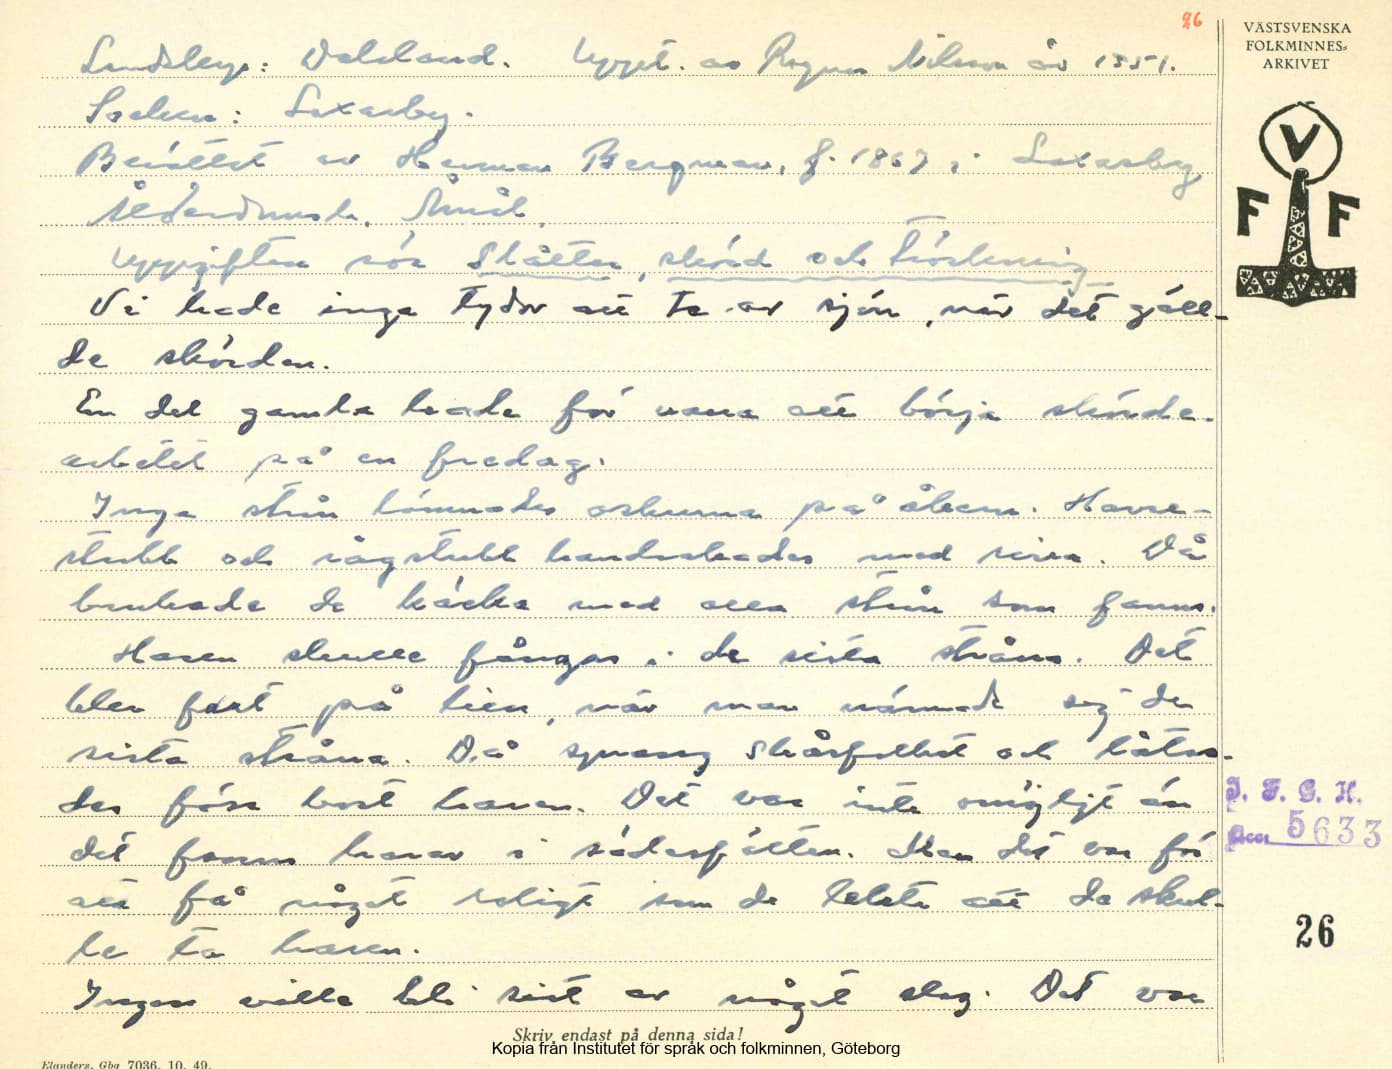 26
VÄSTSVENSKA
FOLKMINNES-
ARKIVET
V
F F
Landskap: Dalsland. Uppt. av Ragnar Nilsson år 1951.
Socken: Laxarby.
Berättat av Herman Bergman, f. 1867 i Laxarby
Ålderdomsh. Åmål
Uppgiften rör Slåtter, skörd och Tröskning
Vi hade inga tydor att ta av sjön, när det gäll-
de skörden.
En del gamla hade för vana att börja skörde-
arbetet på en fredag.
Inga strån lämnades oskurna på åkern. Havre-
stubb och rågstubb handrakades med räva. Då
brukade de räcka med alla strån som fanns.
Haren skulle fångas i de sista stråna. Det
blev fart på lien, när man närmade sig de
sista stråna. Då sprang skårfolket och låtsa-
des fösa bort haren. Det var inte omöjligt än
det fanns harar i sädesfälten. Men det var för
att få något roligt som de lekte att de skul-
le ta haren.
Ingen ville bli sist av något slag. Det var
Skriv endast på denna sida!
Kopia från Institutet för språk och folkminnen, Göteborg
Elanders, Gbg 7036. 10. 49.
I. F. G. H.
Acc. 5633
26